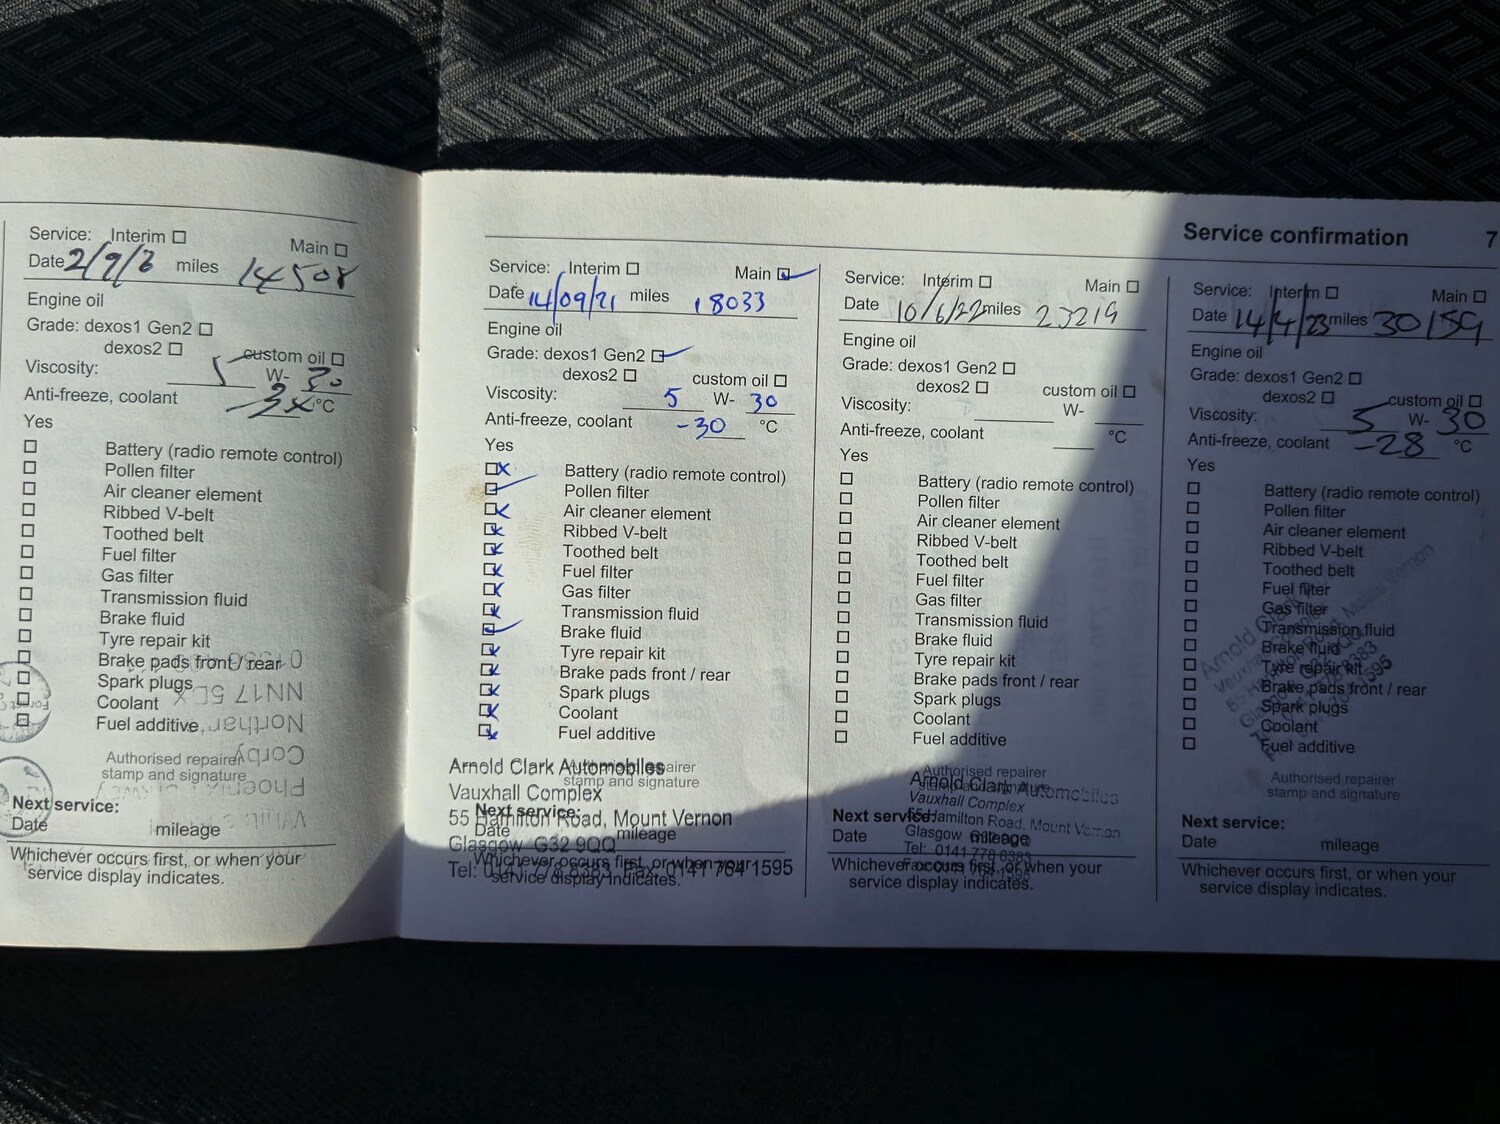 Service: Interim ☐ Main ☐
Date 2/9/ miles 14508
Engine oil
Grade: dexos1 Gen2 ☐
dexos2 ☐ custom oil ☐
Viscosity: 5 W- 30
Anti-freeze, coolant °C
Yes
☐ Battery (radio remote control)
☐ Pollen filter
☐ Air cleaner element
☐ Ribbed V-belt
☐ Toothed belt
☐ Fuel filter
☐ Gas filter
☐ Transmission fluid
☐ Brake fluid
☐ Tyre repair kit
☐ Brake pads front / rear
☐ Spark plugs
☐ Coolant
☐ Fuel additive
Authorised repairer
stamp and signature
Next service:
Date mileage
Whichever occurs first, or when your
service display indicates.
Service confirmation 7
Service: Interim ☐ Main ☑
Date 14/09/21 miles 18033
Engine oil
Grade: dexos1 Gen2 ☑
dexos2 ☐ custom oil ☐
Viscosity: 5 W- 30
Anti-freeze, coolant -30 °C
Yes
☒ Battery (radio remote control)
☑ Pollen filter
☒ Air cleaner element
☒ Ribbed V-belt
☒ Toothed belt
☒ Fuel filter
☒ Gas filter
☒ Transmission fluid
☑ Brake fluid
☒ Tyre repair kit
☒ Brake pads front / rear
☒ Spark plugs
☒ Coolant
☒ Fuel additive
Authorised repairer
stamp and signature
Arnold Clark Automobiles
Vauxhall Complex
55 Hamilton Road, Mount Vernon
Glasgow G32 9QQ
Tel: 0141 778 8383 Fax: 0141 764 1595
Next service:
Date mileage
Whichever occurs first, or when your
service display indicates.
Service: Interim ☐ Main ☐
Date 10/6/22 miles 23219
Engine oil
Grade: dexos1 Gen2 ☐
dexos2 ☐ custom oil ☐
Viscosity: W-
Anti-freeze, coolant °C
Yes
☐ Battery (radio remote control)
☐ Pollen filter
☐ Air cleaner element
☐ Ribbed V-belt
☐ Toothed belt
☐ Fuel filter
☐ Gas filter
☐ Transmission fluid
☐ Brake fluid
☐ Tyre repair kit
☐ Brake pads front / rear
☐ Spark plugs
☐ Coolant
☐ Fuel additive
Authorised repairer
stamp and signature
Arnold Clark Automobiles
Vauxhall Complex
55 Hamilton Road, Mount Vernon
Glasgow
Tel: 0141 778 8383
Next service:
Date mileage
Whichever occurs first, or when your
service display indicates.
Service: Interim ☐ Main ☐
Date 14/4/23 miles 30159
Engine oil
Grade: dexos1 Gen2 ☐
dexos2 ☐ custom oil ☐
Viscosity: 5 W- 30
Anti-freeze, coolant -28 °C
Yes
☐ Battery (radio remote control)
☐ Pollen filter
☐ Air cleaner element
☐ Ribbed V-belt
☐ Toothed belt
☐ Fuel filter
☐ Gas filter
☐ Transmission fluid
☐ Brake fluid
☐ Tyre repair kit
☐ Brake pads front / rear
☐ Spark plugs
☐ Coolant
☐ Fuel additive
Arnold Clark
Authorised repairer
stamp and signature
Next service:
Date mileage
Whichever occurs first, or when your
service display indicates.